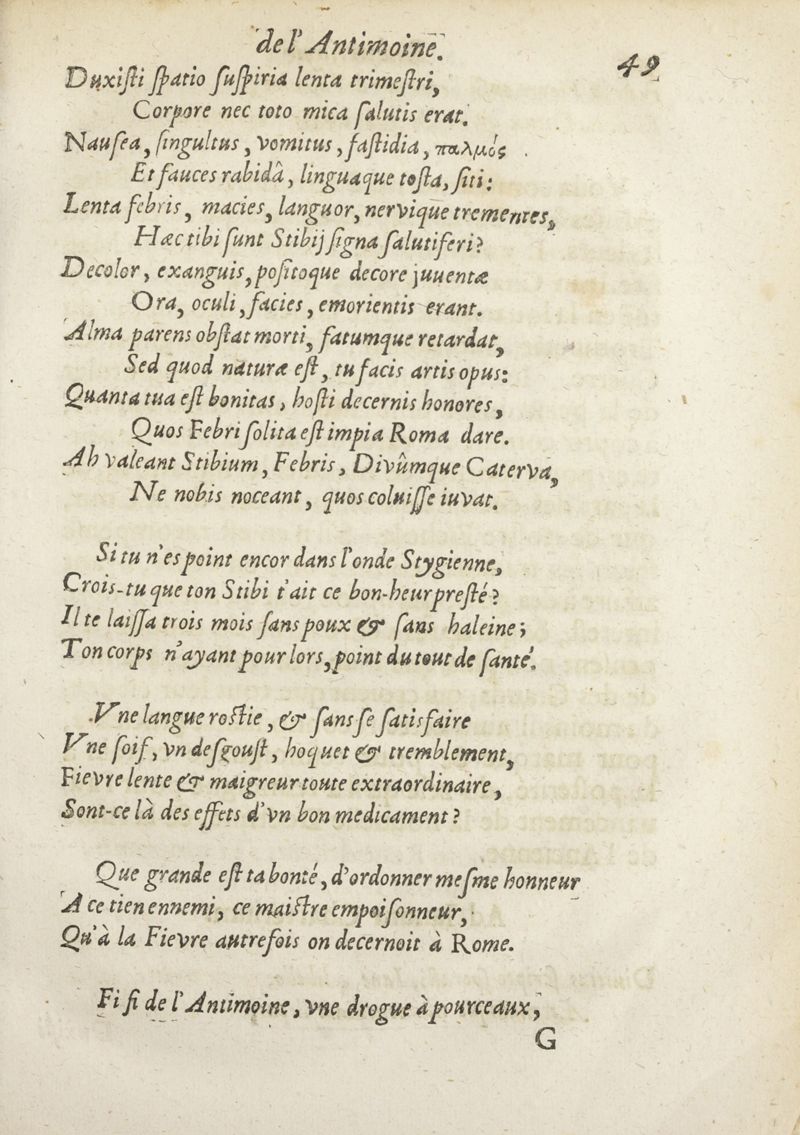 de l'Antimoine.
49
Duxiſti ſpatio ſuſpiria lenta trimeſtri,
Corpore nec toto mica ſalutis erat.
Nauſea, ſingultus, vomitus, faſtidia, παλμός.
Et fauces rabidâ, linguaque toſta, ſiti:
Lenta febris, macies, languor, nervique trementes,
Hæc tibi ſunt Stibij ſigna ſalutiferi?
Decolor, exanguis, poſitoque decore juuentæ
Ora, oculi, facies, emorientis erant.
Alma parens obſtat morti, fatumque retardat,
Sed quod naturæ eſt, tu facis artis opus:
Quanta tua eſt bonitas, hoſti decernis honores,
Quos Febri ſolita eſt impia Roma dare.
Ah valeant Stibium, Febris, Divûmque Caterva,
Ne nobis noceant, quos coluiſſe iuvat.
Si tu n'es point encor dans l'onde Stygienne,
Crois-tu que ton Stibi t'ait ce bon-heur preſté?
Il te laiſſa trois mois ſans poux & ſans haleine;
Ton corps n'ayant pour lors, point du tout de ſanté.
Vne langue roſtie, & ſans ſe ſatisfaire
Vne ſoif, vn deſgouſt, hoquet & tremblement,
Fievre lente & maigreur toute extraordinaire,
Sont-ce là des effets d'vn bon medicament?
Que grande eſt ta bonté, d'ordonner meſme honneur
A ce tien ennemi, ce maiſtre empoiſonneur,
Qu'à la Fievre autrefois on decernoit à Rome.
Fi fi de l'Antimoine, vne drogue à pourceaux,
G